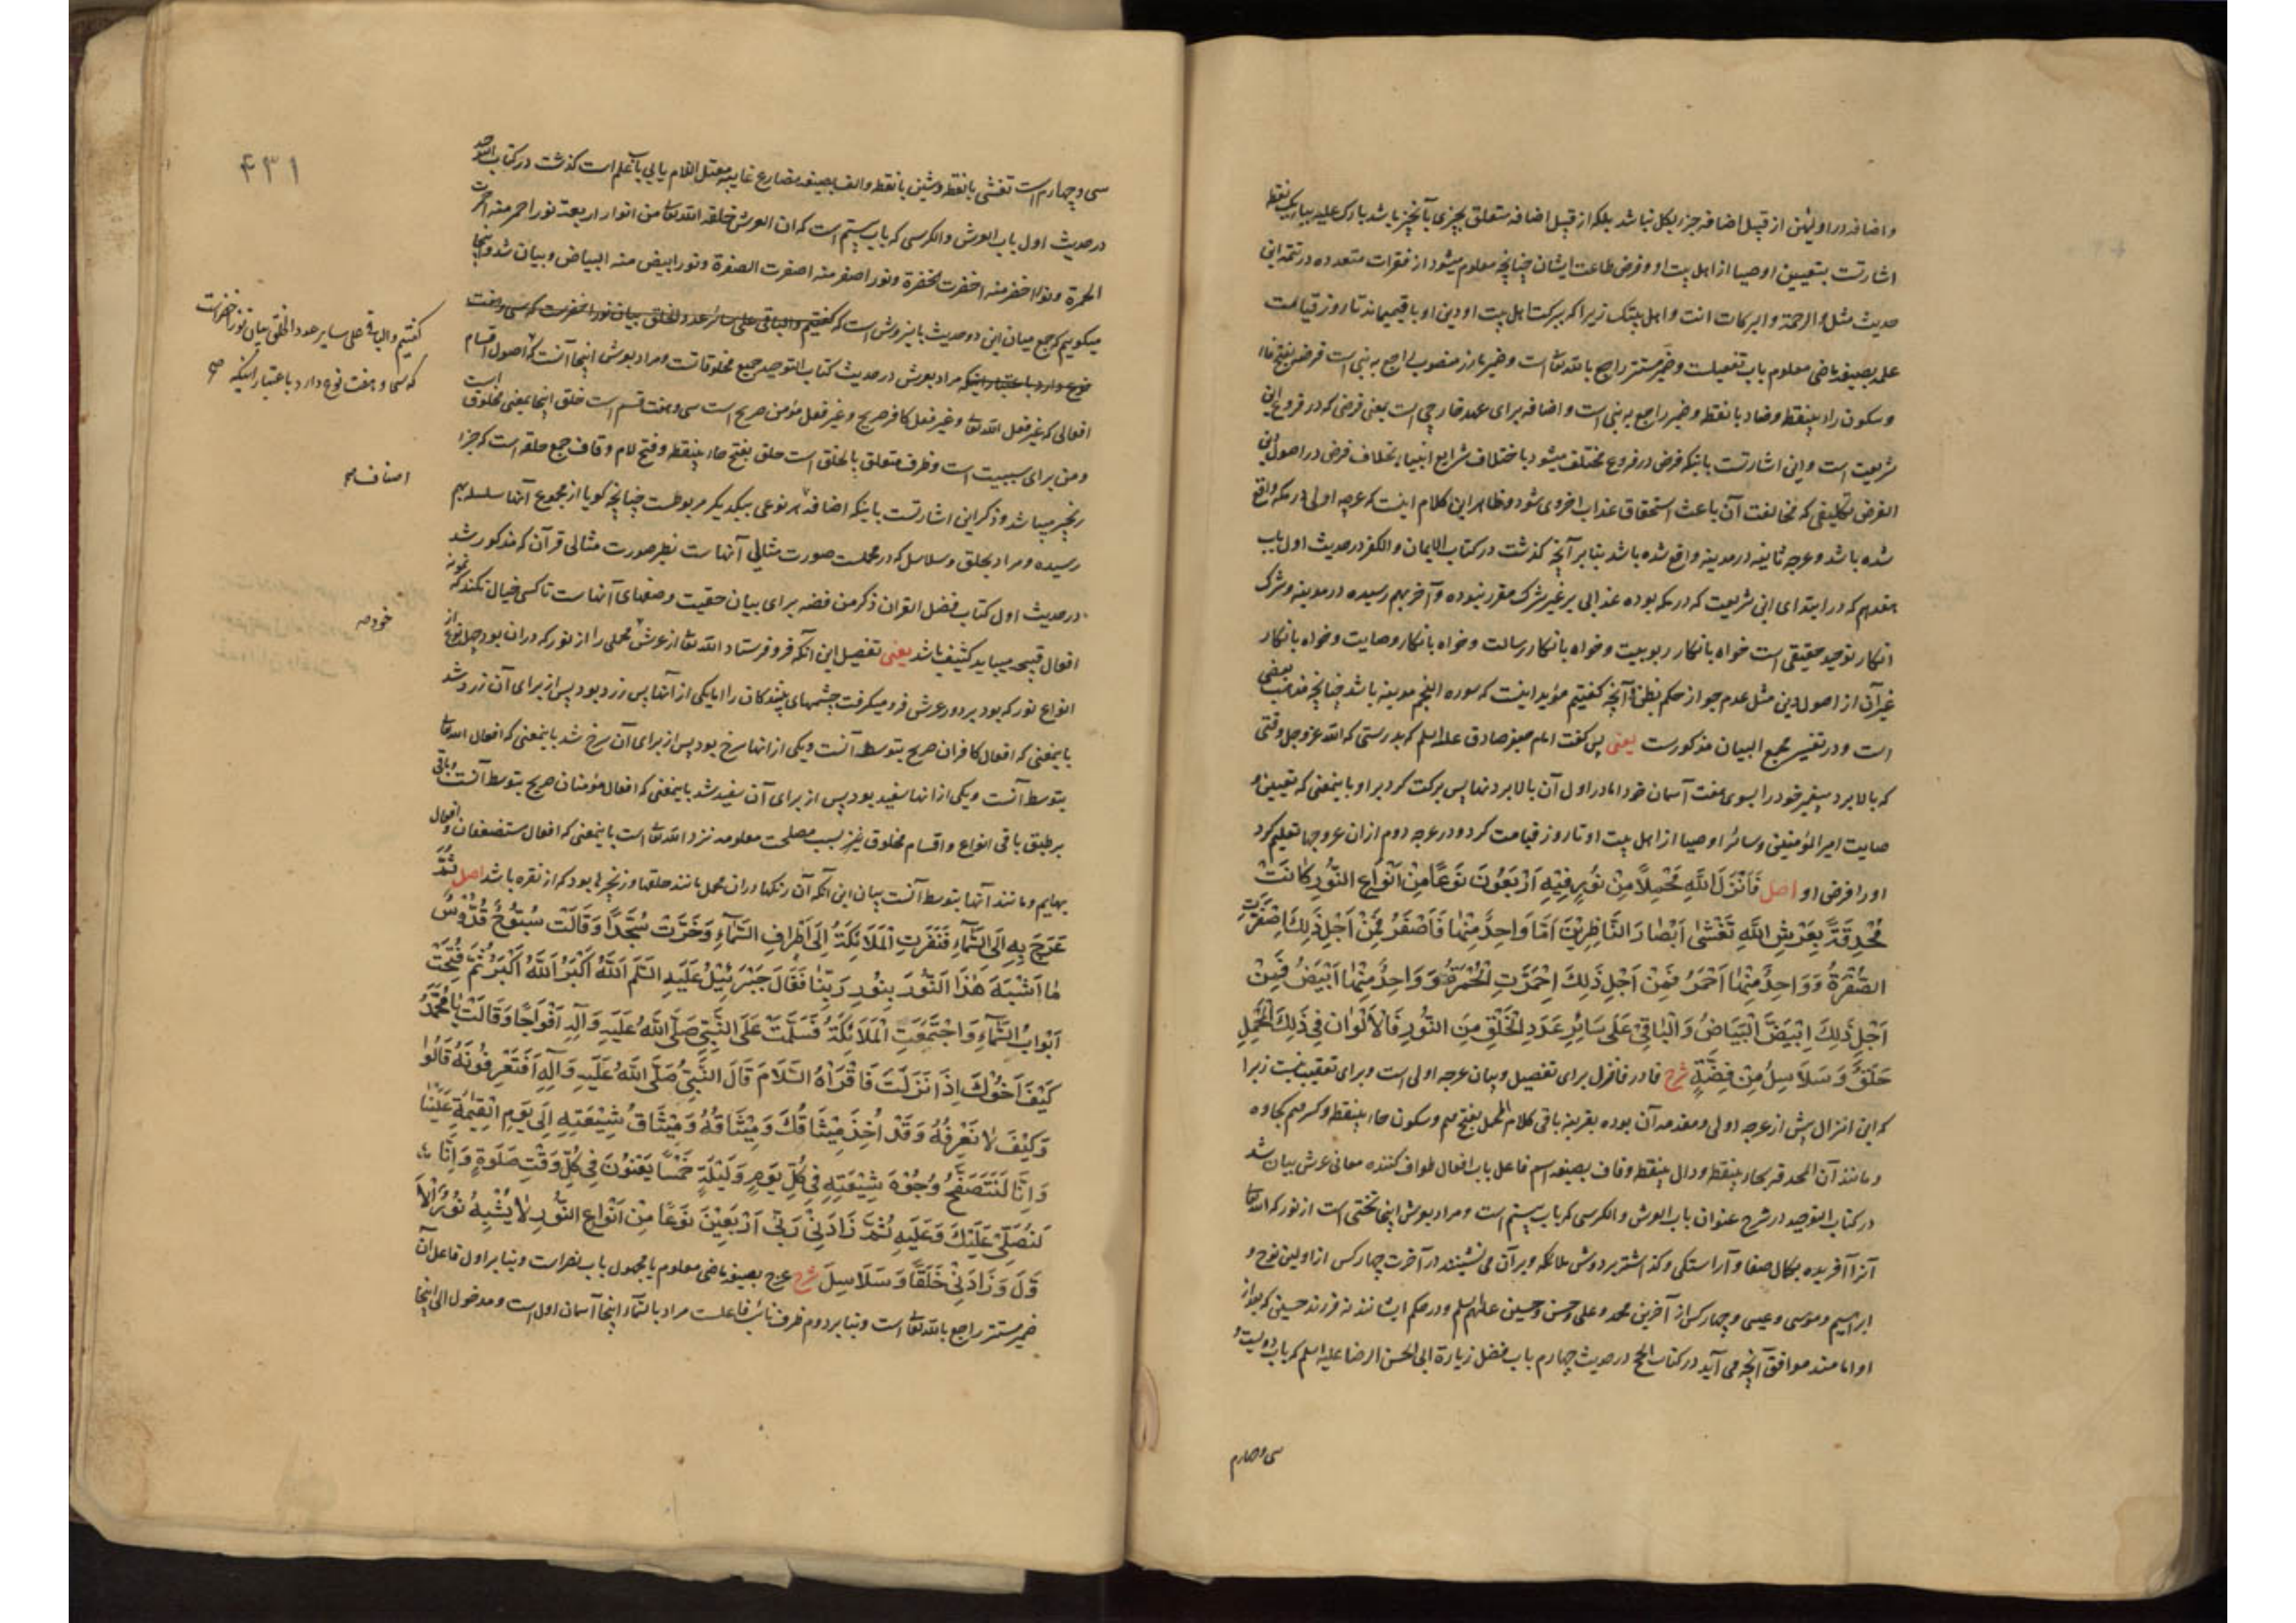 و اضافه در اولین از قبیل اضافه جزء بکل نباشد بلکه از قبیل اضافه متعلق بچیزی بآنچیز باشد بارک علیه بباء یک نقطه
اشارتست بتعیین اوصیا از اهل بیت او و فرض طاعت ایشان چنانچه معلوم میشود از فقرات متعدده در تتمه این
حدیث مثل و الرحمة و البرکات انت و اهل بیتک زیرا که ببرکت اهل بیت او دین او باقی میماند تا روز قیامت
علمه بصیغه ماضی معلوم باب تفعیلست و ضمیر مستتر راجع بالله تعالی است و ضمیر بارز منصوب راجع به نبی است فرض بفتح فاء
و سکون راء بینقطه و ضاد بانقطه و ضمیر راجع به نبی است و اضافه برای عهد خارجی است یعنی فرضی که در فروع این
شریعت است و این اشارتست باینکه فرض در فروع مختلف میشود باختلاف شرایع انبیا بخلاف فرض در اصول دین
الفرض تکلیفی که مخالفت آن باعث استحقاق عذاب اخروی شود و ظاهر این کلام اینست که عرجه اولی در مکه واقع
شده باشد و عرجه ثانیه در مدینه واقع شده باشد بنابر آنچه گذشت در کتاب الایمان و الکفر در حدیث اول باب
هفدهم که در ابتدای این شریعت که در مکه بوده عذابی بر غیر شرک مقرر نبوده و آخر بهم رسیده در مدینه و شرک
انکار توحید حقیقی است خواه بانکار ربوبیت و خواه بانکار رسالت و خواه بانکار وصایت و خواه بانکار
غیر آن از اصول دین مثل عدم جواز حکم بظن و آنچه گفتیم مؤید اینست که سوره النجم مدینه باشد چنانچه مذهب بعضی
است و در تفسیر مجمع البیان مذکورست یعنی پس گفت امام جعفر صادق علیه السلم که بدرستی که الله عز و جل وقتی
که بالا برد پیغمبر خود را بسوی هفت آسمان خود اما در اول آن بالا بردنها پس برکت کرد بر او باینمعنی که تعیین و
صایت امیر المؤمنین و سائر اوصیا از اهل بیت او تا روز قیامت کرد و در عرجه دوم از ان عروجها تعلیم کرد
او را فرض او اصل فَاَنْزَلَ اللّهُ مَحْمِلاً مِنْ نُورٍ فِيْهِ اَرْبَعُونَ نَوْعًا مِنْ اَنْوَاعِ النُّوْرِ كَانَتْ
مُحْدِقَةً بِعَرْشِ اللّهِ تَغْشٰى اَبْصَارَ النَّاظِرِيْنَ اَمَّا وَاحِدٌ مِنْهَا فَاَصْفَرُ فَمِنْ اَجْلِ ذٰلِكَ اصْفَرَّتِ
الصُّفْرَةُ وَ وَاحِدٌ مِنْهَا اَحْمَرُ فَمِنْ اَجْلِ ذٰلِكَ اِحْمَرَّتِ الْحُمْرَةُ وَ وَاحِدٌ مِنْهَا اَبْيَضُ فَمِنْ
اَجْلِ ذٰلِكَ اِبْيَضَّ الْبَيَاضُ وَ الْبَاقِيْ عَلَى سَائِرِ عَدَدِ الْخَلْقِ مِنَ النُّوْرِ فَالْاَلْوَان فِي ذٰلِكَ الْمَحْمِلِ
حَلَقٌ وَ سَلَاسِلُ مِنْ فِضَّةٍ شرح فا در فانزل برای تفصیل و بیان عرجه اولی است و برای تعقیب نیست زیرا
که این انزال پیش از عرجه اولی و مقدمه آن بوده بقرینه باقی کلام المحمل بفتح میم و سکون حاء بینقطه و کسر میم کجاوه
و مانند آن المحدقه بحاء بینقطه و دال بینقطه و قاف بصیغه اسم فاعل باب افعال طواف کننده معانی عرش بیان شد
در کتاب التوحید در شرح عنوان باب العرش و الکرسی که باب بیستم است و مراد بعرش اینجا تختی است از نور که الله تعالی
آنرا آفریده بکمال صفا و آراستگی و گذاشته بر دوش ملائکه و بر آن می نشینند در آخرت چهار کس از اولین نوح و
ابراهیم و موسی و عیسی و چهار کس از آخرین محمد و علی و حسن و حسین علیهم السلم و در حکم ایشانند نه فرزند حسین که بعد از
او امامند موافق آنچه می آید در کتاب الحج در حدیث چهارم باب فضل زیارة ابی الحسن الرضا علیه السلم که باب دویست و
سی و چهارم
۴۳۱
سی و چهارم است تغشی بانقطه و شین بانقطه و الف بصیغه مضارع غایبه معتل اللام یایی باب علم است گذشت در کتاب التوحید
در حدیث اول باب العرش و الکرسی که باب بیستم است که ان العرش خلقه الله تعالی من انوار اربعة نور احمر منه احمرت
الحمرة و نور اخضر منه اخضرت الخضرة و نور اصفر منه اصفرت الصفرة و نور ابیض منه البیاض و بیان شد و اینجا
میگوییم که جمع میان این دو حدیث باینروش است که گفتیم و الباقی علی سائر عدد الخلق بیان نور اخضرست که سی و هفت
نوع دارد باعتبار اینکه مراد بعرش در حدیث کتاب التوحید جمیع مخلوقاتست و مراد بعرش اینجا آنست که اصول اقسام
افعالی که غیر فعل الله تعالی و غیر فعل کافر صریح و غیر فعل مؤمن صریح است سی و هفت قسم است خلق اینجا بمعنی مخلوق است
و من برای سببیت است و ظرف متعلق بالخلق است حلق بفتح حاء بینقطه و فتح لام و قاف جمع حلقه است که جزء
زنجیر میباشد و ذکر این اشارتست باینکه اضافه هر نوعی بیکدیگر مربوطست چنانچه گویا از مجموع آنها سلسله بهم
رسیده و مراد بحلق و سلاسل که در محملست صورت مثالی آنهاست نظیر صورت مثالی قرآن که مذکور شد
در حدیث اول کتاب فضل القران ذکر من فضه برای بیان حقیت وضعهای آنهاست تا کسی خیال نکند که نمونه
افعال قبیحه میباید کثیف باشد یعنی تفصیل این آنکه فرو فرستاد الله تعالی از عرش محملی را از نور که در ان بود چهل نوع از
انواع نور که بود بر دور عرش فرو میگرفت چشمهای بینندگان را اما یکی از آنها پس زرد بود پس از برای آن زرد شد
باینمعنی که افعال کافران صریح بتوسط آنست و یکی از انها سرخ بود پس از برای آن سرخ شد باینمعنی که افعال الله تعالی
بتوسط آنست و یکی از انها سفید بود پس از برای آن سفید شد باینمعنی که افعال مؤمنان صریح بتوسط آنست و باقی
بر طبق باقی انواع و اقسام مخلوق بسبب مصلحت معلومه نزد الله تعالی است باینمعنی که افعال مستضعفان و افعال
بهایم و مانند آنها بتوسط آنست بیان این آنکه آن رنگها در ان محمل مانند حلقها و زنجیرها بود که از نقره باشد اصل ثُمَّ
عَرَجَ بِهِ اِلَى السَّمَآءِ فَنَفَرَتِ الْمَلَائِكَةُ اِلَى اَطْرَافِ السَّمَآءِ وَ خَرَّتْ سُجَّدًا وَ قَالَتْ سُبُّوحٌ قُدُّوْسٌ
مٰا اَشْبَهَ هٰذَا النُّوْرَ بِنُوْرِ رَبِّنَا فَقَالَ جَبْرَئِيْلُ عَلَيْهِ السَّلَم اَللّهُ اَكْبَرُ اَللّهُ اَكْبَرُ ثُمَّ فُتِحَتْ
اَبْوَابُ السَّمَآءِ وَ اجْتَمَعَتِ الْمَلَائِكَةُ فَسَلَّمَتْ عَلَى النَّبِيِّ صَلَّى اللّهُ عَلَيْهِ وَ آلِهِ اَفْوَاجًا وَ قَالَتْ يَا مُحَمَّدُ
كَيْفَ اَخُوْكَ اِذَا نَزَلْتَ فَاقْرَاْهُ السَّلَامَ قَالَ النَّبِيُّ صَلَّى اللّهُ عَلَيْهِ وَ آلِهِ اَفَتَعْرِفُوْنَهُ قَالُوْا
وَ كَيْفَ لَا نَعْرِفُهُ وَ قَدْ اُخِذَ مِيْثَاقُكَ وَ مِيْثَاقُهُ وَ مِيْثَاقُ شِيْعَتِهِ اِلَى يَوْمِ الْقِيٰمَةِ عَلَيْنَا
وَ اِنَّا لَنَتَصَفَّحُ وُجُوْهَ شِيْعَتِهِ فِي كُلِّ يَوْمٍ وَ لَيْلَةٍ خَمْسًا يَعْنُوْنَ فِي كُلِّ وَقْتِ صَلٰوةٍ وَ اِنَّا
لَنُصَلِّي عَلَيْكَ وَ عَلَيْهِ ثُمَّ زَادَنِيْ رَبِّيْ اَرْبَعِيْنَ نَوْعًا مِنْ اَنْوَاعِ النُّوْرِ لَا يُشْبِهُ نُوْرَ الْاَ
وَّلِ وَ زَادَنِيْ حَلَقًا وَ سَلَاسِلَ شرح عرج بصیغه ماضی معلوم یا مجهول باب نصر است و بنابر اول فاعل آن
ضمیر مستتر راجع بالله تعالی است و بنابر دوم ظرف نائب فاعلست مراد بالسّماء اینجا آسمان اول است و مدخول الی اینجا
گفتیم و الباقی علی سایر عدد الخلق بیان نور اخضرست
که سی و هفت نوع دارد باعتبار اینکه صح
اصناف صح
خود صح